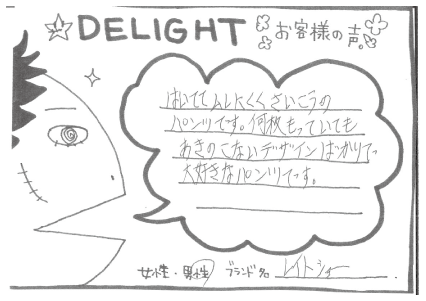 DELIGHT お客様の声。
はいててムレにくくさいこうの
パンツです。何枚もっていても
あきのこないデザインばかりで
大好きなパンツです。
女性・男性 ブランド名 レイトショー